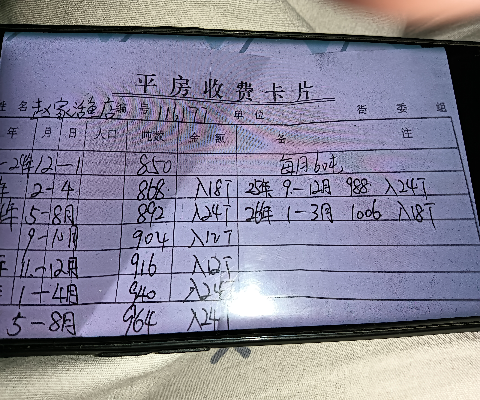 平房收费卡片
姓名 赵家渔店 编号 116177 单位 街 委 组
年 月 日 人口 吨数 金额 备 注
24年12-1 850 每月6吨
2-4 868 入18T 25年 9-12月 988 入24T
年 5-8月 892 入24T 26年 1-3月 1006 入18T
9-10月 904 入12T
年 11-12月 916 入12T
1-4月 940 入24
5-8月 964 入24